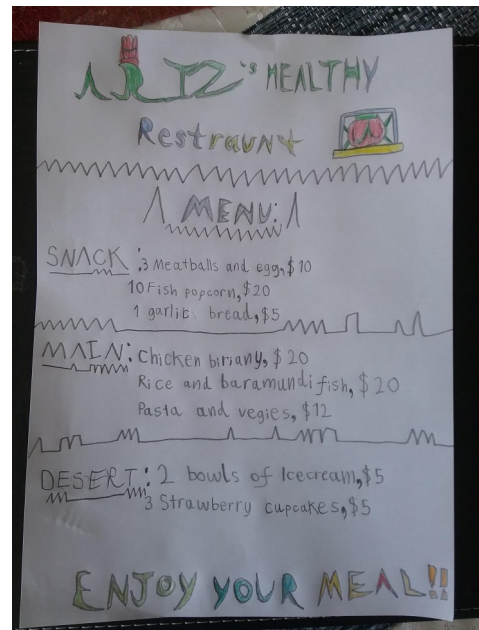 ARIZ's HEALTHY
Restraunt
MENU:
SNACK: 3 Meatballs and egg, $10
10 Fish popcorn, $20
1 garlic bread, $5
MAIN: Chicken biriany, $20
Rice and baramundi fish, $20
Pasta and vegies, $12
DESERT: 2 bowls of Icecream, $5
3 Strawberry cupcakes, $5
ENJOY YOUR MEAL!!